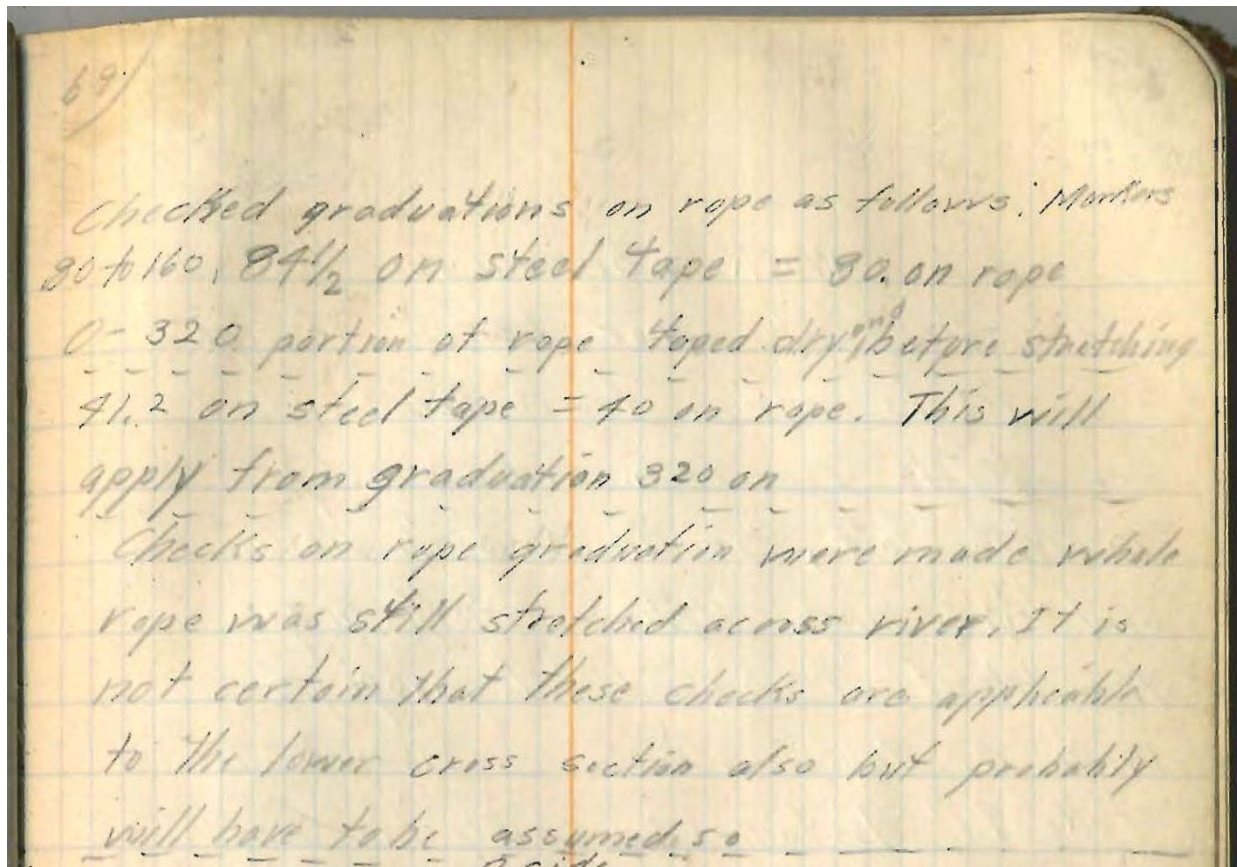 69)
Checked graduations on rope as follows: Markers
80 to 160, 84 1/2 on steel tape = 80. on rope
0- 320 portion of rope taped dry and before stretching
41.2 on steel tape = 40 on rope. This will
apply from graduation 320 on
Checks on rope graduation were made while
rope was still stretched across river. It is
not certain that these checks are applicable
to the lower cross section also but probably
will have to be assumed so